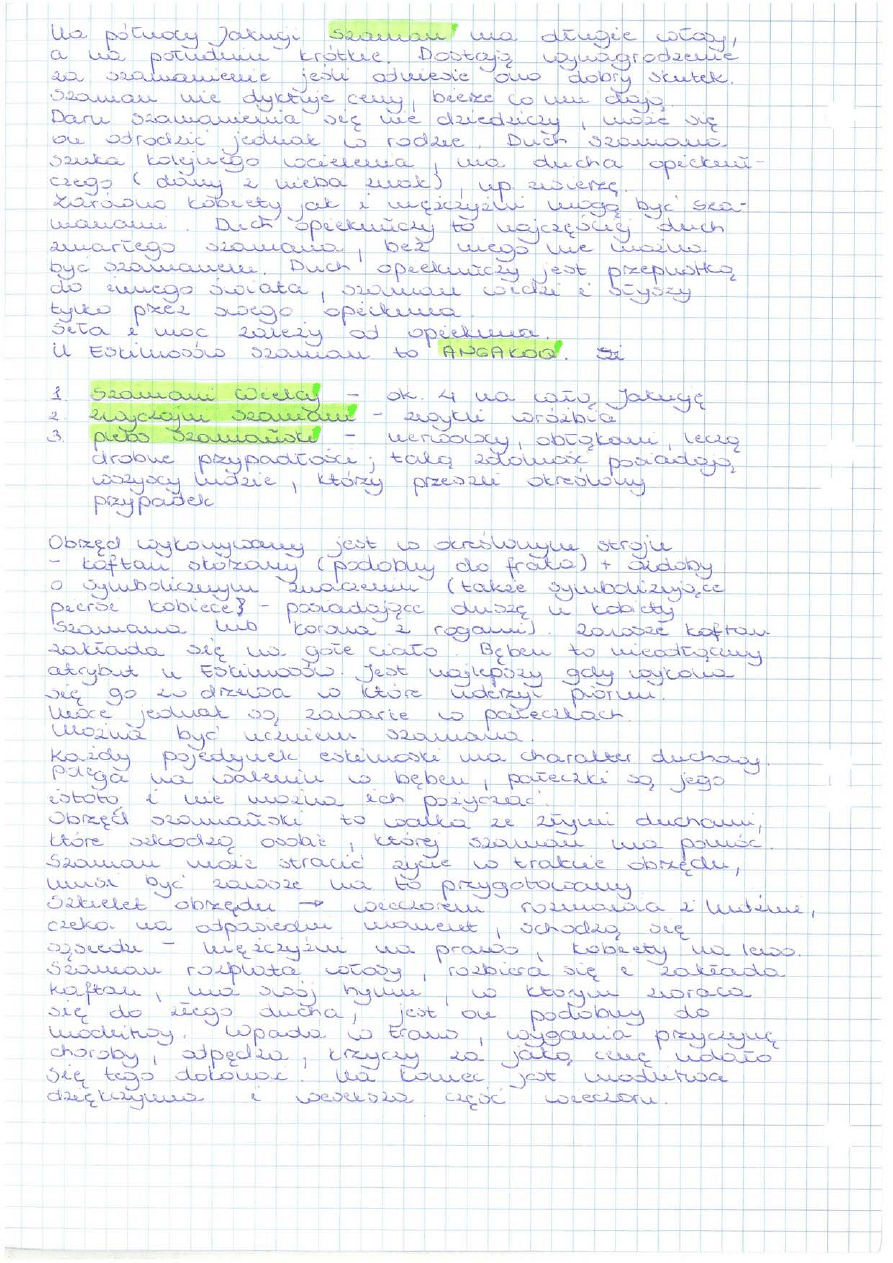 Na północy Jakucji szaman ma długie włosy,
a na południu krótkie. Dostają wynagrodzenie
za szamanienie jeśli odniesie ono dobry skutek.
Szaman nie dyktuje ceny, bierze co mu dają.
Daru szamanienia się nie dziedziczy, może się
on odrodzić jednak w rodzie. Duch szamana
szuka kolejnego wcielenia, ma ducha opiekuń-
czego (dany z nieba znak), np. zwierzę.
Zarówno kobiety jak i mężczyźni mogą być sza-
manami. Duch opiekuńczy to najczęściej duch
zmarłego szamana, bez niego nie można
być szamanem. Duch opiekuńczy jest przepustką
do innego świata, szaman widzi i słyszy
tylko przez swego opiekuna.
Siła i moc zależy od opiekuna.
U Eskimosów szaman to ANGAKOQ.
1. Szamani wielcy - ok. 4 na całą Jakucję
2. zwyczajni szamani - zwykli wróżbici
3. plebs szamański - nerwowcy, obłąkani, leczą
drobne przypadłości; taką zdolność posiadają
wszyscy ludzie, którzy przeszli określony
przypadek
Obrzęd wykonywany jest w określonym stroju
- kaftan skórzany (podobny do fraka) + ozdoby
o symbolicznym znaczeniu (także symbolizujące
piersi kobiece} - posiadające duszę u kobiety
szamana lub korona z rogami). Zawsze kaftan
zakłada się na gołe ciało. Bęben to nieodłączny
atrybut u Eskimosów. Jest najlepszy gdy wykona
się go z drzewa w które uderzył piorun.
Moce jednak są zawarte w pałeczkach.
Można być uczniem szamana.
Każdy pojedynek eskimoski ma charakter duchowy.
Polega na waleniu w bęben, pałeczki są jego
istotą i nie można ich pożyczać.
Obrzęd szamański to walka ze złymi duchami,
które szkodzą osobie, której szaman ma pomóc.
Szaman może stracić życie w trakcie obrzędu,
musi być zawsze na to przygotowany
Szkielet obrzędu → wieczorem rozmawia z ludźmi,
czeka na odpowiedni moment, schodzą się
sąsiedzi - mężczyźni na prawo, kobiety na lewo.
Szaman rozplata włosy, rozbiera się i zakłada
kaftan, ma swój hymn, w którym zwraca
się do złego ducha, jest on podobny do
modlitwy. Wpada w trans, wygania przyczynę
choroby, odpędza, krzyczy za jaką cenę udało
się tego dokonać. Na koniec jest modlitwa
dziękczynna i weselsza część wieczoru.